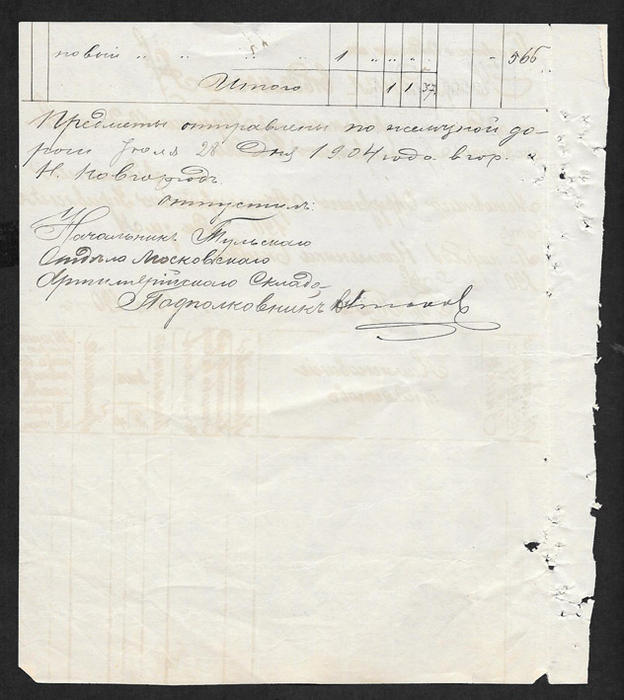 новый " " " " 1 " " " " 566
Итого 1 1 37
Предметы отправлены по железной до-
роги Июля 28 Дня 1904 года в гор.
Н. Новгородъ.
отпустилъ:
Начальникъ Тульскаго
Отдѣла Московскаго
Артиллерійскаго Склада
Подполковникъ